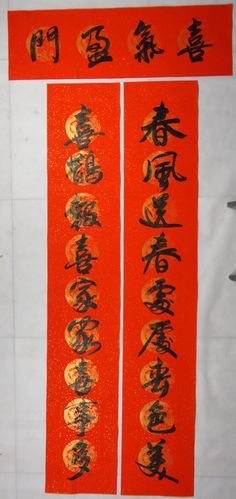 喜氣盈門
春風送春處處春色美
喜鵲報喜家家喜事多